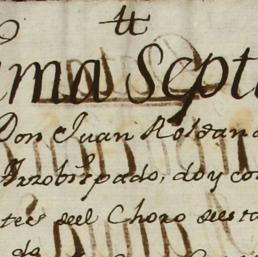 tt
ima Septi
Don Juan Roldan
Arzobispado, doy co
tes del Choro desta
de